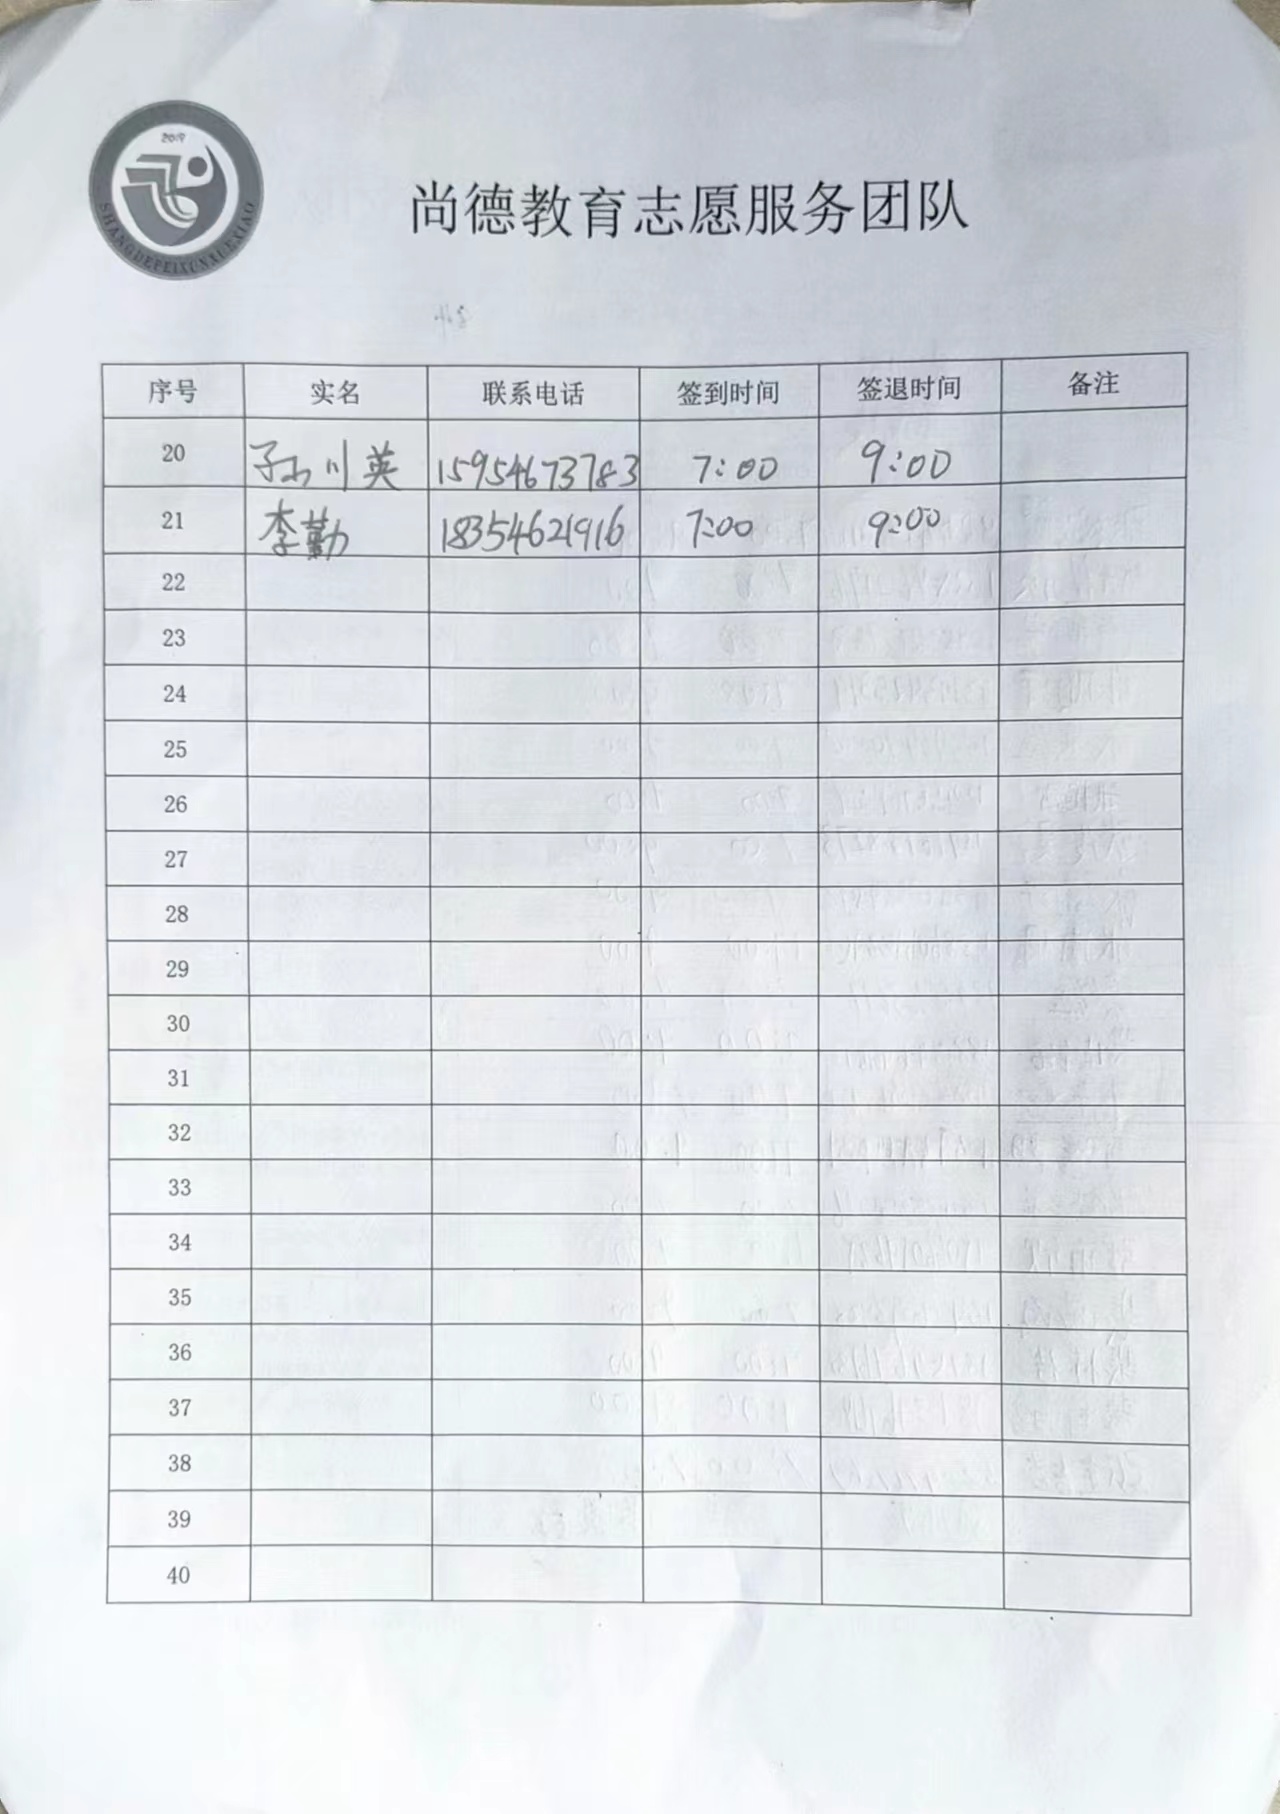 2019
SHANGDEPEIXUNXUEXIAO
尚德教育志愿服务团队
序号 实名 联系电话 签到时间 签退时间 备注
20 孙川英 15954673783 7:00 9:00
21 李勤 18354621916 7:00 9:00
22
23
24
25
26
27
28
29
30
31
32
33
34
35
36
37
38
39
40